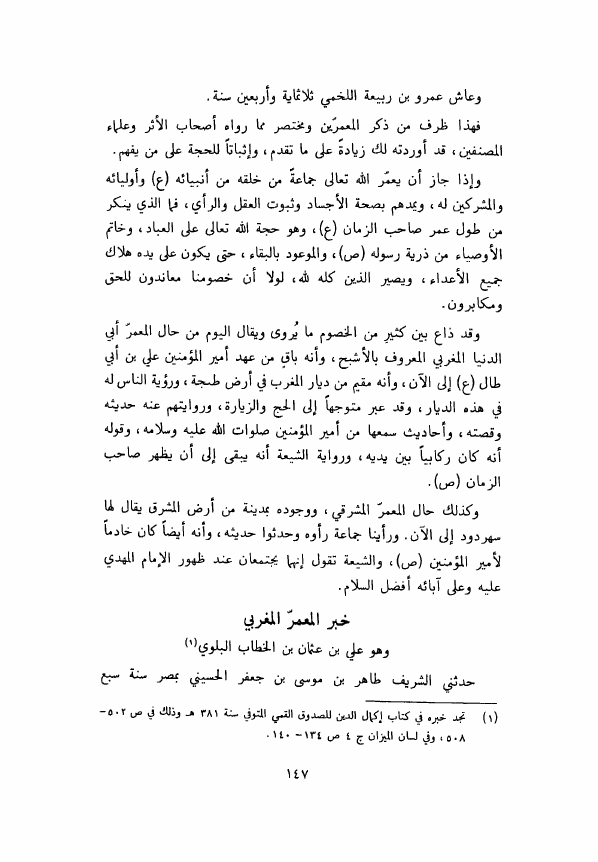 وعاش عمرو بن ربيعة اللخمي ثلاثماية وأربعين سنة.
فهذا ظرف من ذكر المعمرّين ومختصر مما رواه أصحاب الأثر وعلماء
المصنفين، قد أوردته لك زيادةً على ما تقدم، وإثباتاً للحجة على من يفهم.
وإذا جاز أن يعمّر الله تعالى جماعةً من خلقه من أنبيائه (ع) وأوليائه
والمشركين له، ويمدهم بصحة الأجساد وثبوت العقل والرأي، فما الذي ينكر
من طول عمر صاحب الزمان (ع)، وهو حجة الله تعالى على العباد، وخاتم
الأوصياء من ذرية رسوله (ص)، والموعود بالبقاء، حتى يكون على يده هلاك
جميع الأعداء، ويصير الذين كله لله، لولا أن خصومنا معاندون للحق
ومكابرون.
وقد ذاع بين كثيرٍ من الخصوم ما يُروى ويقال اليوم من حال المعمرّ أبي
الدنيا المغربي المعروف بالأشبح، وأنه باقٍ من عهد أمير المؤمنين علي بن أبي
طال (ع) إلى الآن، وأنه مقيم من ديار المغرب في أرض طبجة، ورؤية الناس له
في هذه الديار، وقد عبر متوجهاً إلى الحج والزيارة، وروايتهم عنه حديثه
وقصته، وأحاديث سمعها من أمير المؤمنين صلوات الله عليه وسلامه، وقوله
أنه كان ركابياً بين يديه، ورواية الشيعة أنه يبقى إلى أن يظهر صاحب
الزمان (ص).
وكذلك حال المعمرّ المشرقي، ووجوده بمدينة من أرض المشرق يقال لها
سهردود إلى الآن. ورأينا جماعة رأوه وحدثوا حديثه، وأنه أيضاً كان خادماً
لأمير المؤمنين (ص)، والشيعة تقول إنهما يجتمعان عند ظهور الإمام المهدي
عليه وعلى آبائه أفضل السلام.
خبر المعمرّ المغربي
وهو علي بن عثمان بن الخطاب البلوي(١)
حدثني الشريف طاهر بن موسى بن جعفر الحسيني بمصر سنة سبع
(١) تجد خبره في كتاب إكمال الدين للصدوق القمي المتوفي سنة ٣٨١ هـ وذلك في ص ٥٠٢-
٥٠٨، وفي لسان الميزان ج ٤ ص ١٣٤- ١٤٠.
١٤٧